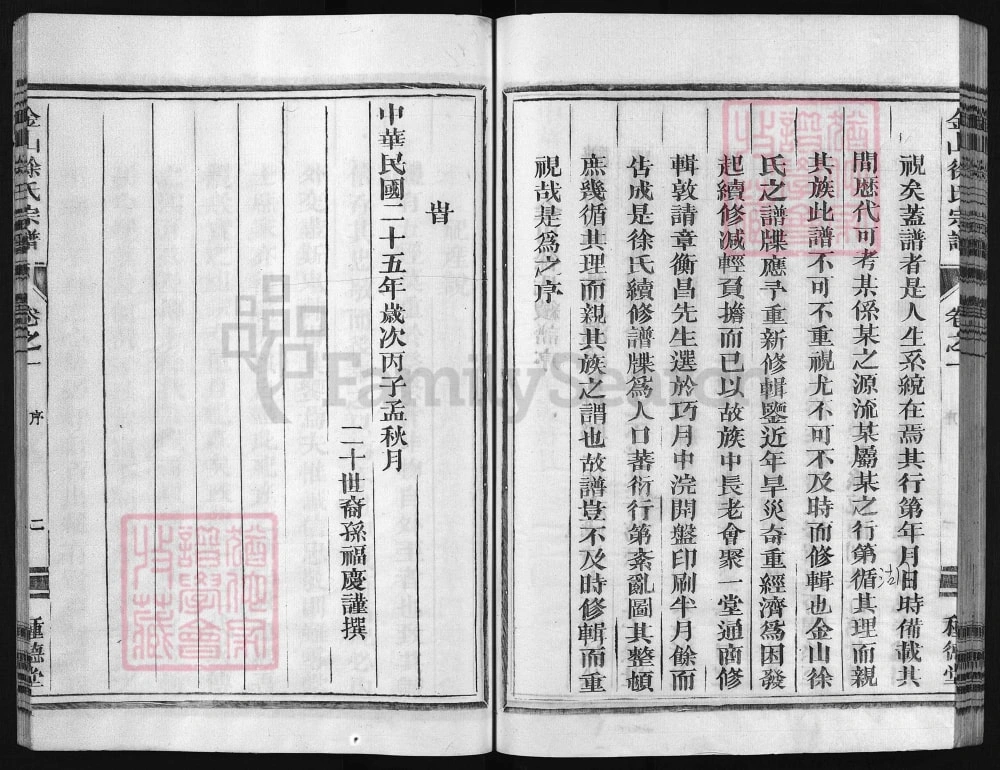 視矣蓋譜者是人生系統在焉其行第年月日時備載其
間歷代可考某係某之源流某屬某之行第循其理而親
其族此譜不可不重視尤不可不及時而修輯也金山徐
氏之譜牒應予重新修輯鑒近年旱災奇重經濟為困發
起續修減輕負擔而已以故族中長老會聚一堂通商修
輯敦請章衡昌先生選於巧月中浣開盤印刷半月餘而
告成是徐氏續修譜牒為人口蕃衍行第紊亂圖其整頓
庶幾循其理而親其族之謂也故譜豈不及時修輯而重
視哉是為之序
旹
中華民國二十五年歲次丙子孟秋月
二十世裔孫福慶謹撰
金山徐氏宗譜
卷之一
序
二
種德堂
金山徐氏宗譜
卷之一
種德堂
FamilySearch